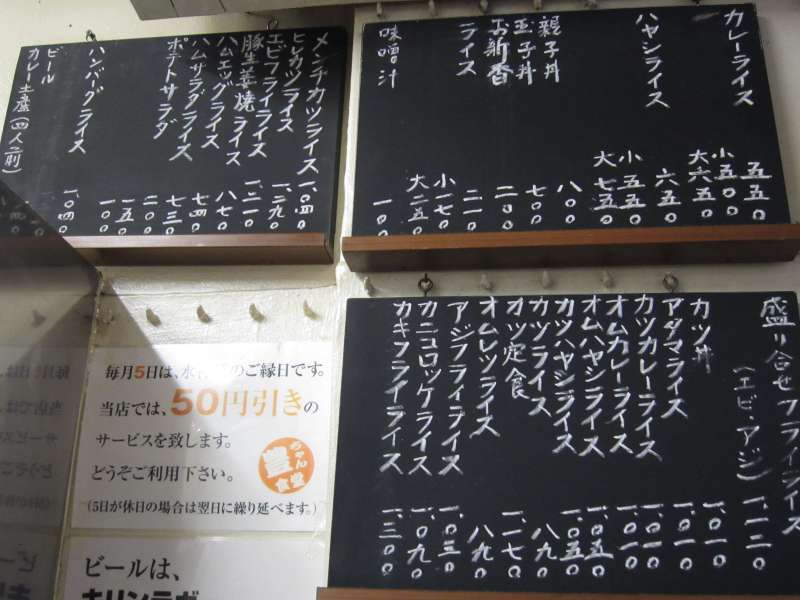 カレーライス 五五〇
小 五〇〇
大 六五〇
ハヤシライス 六五〇
小 五五〇
大 七五〇
親子丼 八〇〇
玉子丼 七〇〇
お新香 二〇〇
ライス 二一〇
小 一七〇
大 二五〇
味噌汁 一〇〇
メンチカツライス 一、〇四〇
ヒレカツライス 一、二九〇
エビフライライス 一、二一〇
豚生姜焼ライス 八七〇
ハムエッグライス 七四〇
ハムサラダライス 七三〇
ポテトサラダ 二〇〇
一五〇
一〇〇
ハンバーグライス 一、〇四〇
ビール
カレー土産(四人前)
盛り合せフライライス
(エビ、アジ) 一、一二〇
カツ丼 一、〇一〇
アタマライス 一、〇一〇
カツカレーライス 一、〇〇〇
オムカレーライス
オムハヤシライス
カツハヤシライス 一、〇五〇
カツライス 八九〇
オツ定食 一、一七〇
オムレツライス 八九〇
アジフライライス 一、〇三〇
カニコロッケライス 一、〇九〇
カキフライライス 一、三〇〇
毎月5日は、水
のご縁日です。
当店では、50円引きの
サービスを致します。
どうぞご利用下さい。
(5日が休日の場合は翌日に繰り延べます。)
豊ちゃん食堂
ビールは、